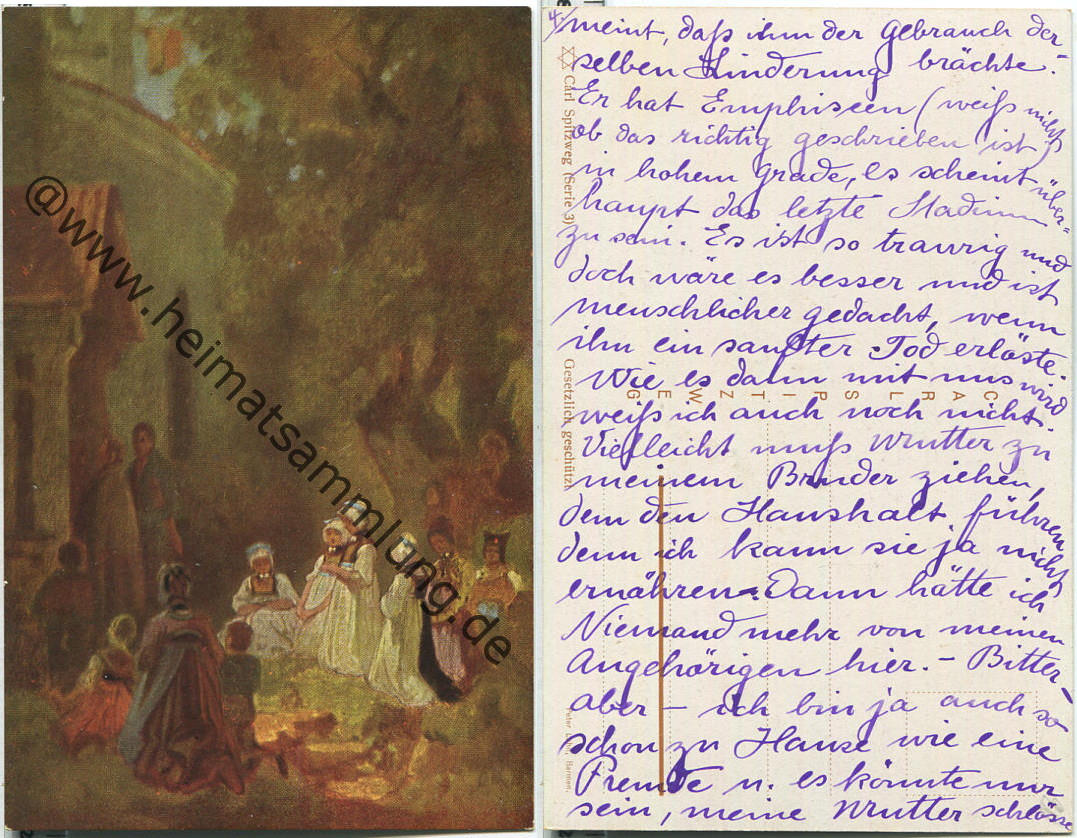 @www.heimatsammlung.de
4.
meint, daß ihm der Gebrauch der-
selben Linderung brächte.
Er hat Emphiseen (weiß nicht
ob das richtig geschrieben ist)
in hohem Grade, es scheint über-
haupt das letzte Stadium
zu sein. Es ist so traurig und
doch wäre es besser und ist
menschlicher gedacht, wenn
ihn ein sanfter Tod erlöste.
Wie es dann mit uns wird
weiß ich auch noch nicht.
Vielleicht muß Mutter zu
meinem Bruder ziehen,
dem den Haushalt führen
denn ich kann sie ja nicht
ernähren. Dann hätte ich
Niemand mehr von meinen
Angehörigen hier. - Bitter-
aber - ich bin ja auch so
schon zu Hause wie eine
Fremde u. es könnte nur
sein, meine Mutter schlösse
Carl Spitzweg (Serie 3)
Gesetzlich geschützt
CARL SPITZWEG
Barmen.